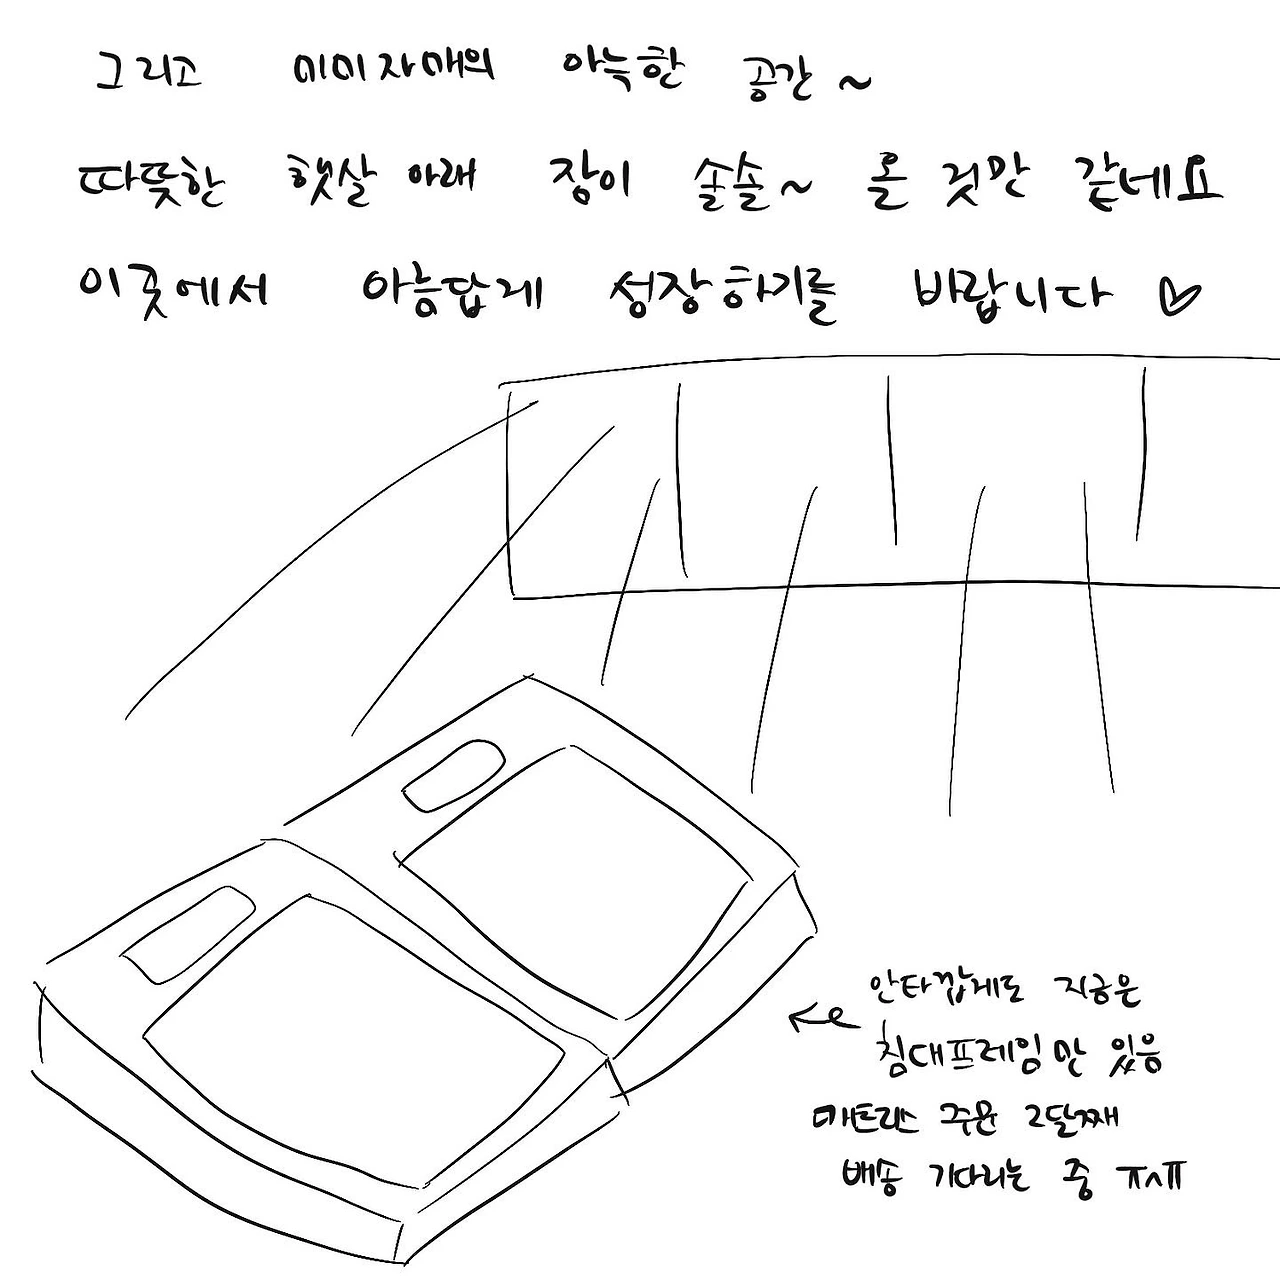 그리고 미미자매의 아늑한 공간~
따뜻한 햇살 아래 잠이 솔솔~ 올 것만 같네요
이곳에서 아름답게 성장하기를 바랍니다 ♡
안타깝게도 지금은
침대프레임만 있음
매트리스 주문 2달째
배송 기다리는 중 ㅠㅅㅠ